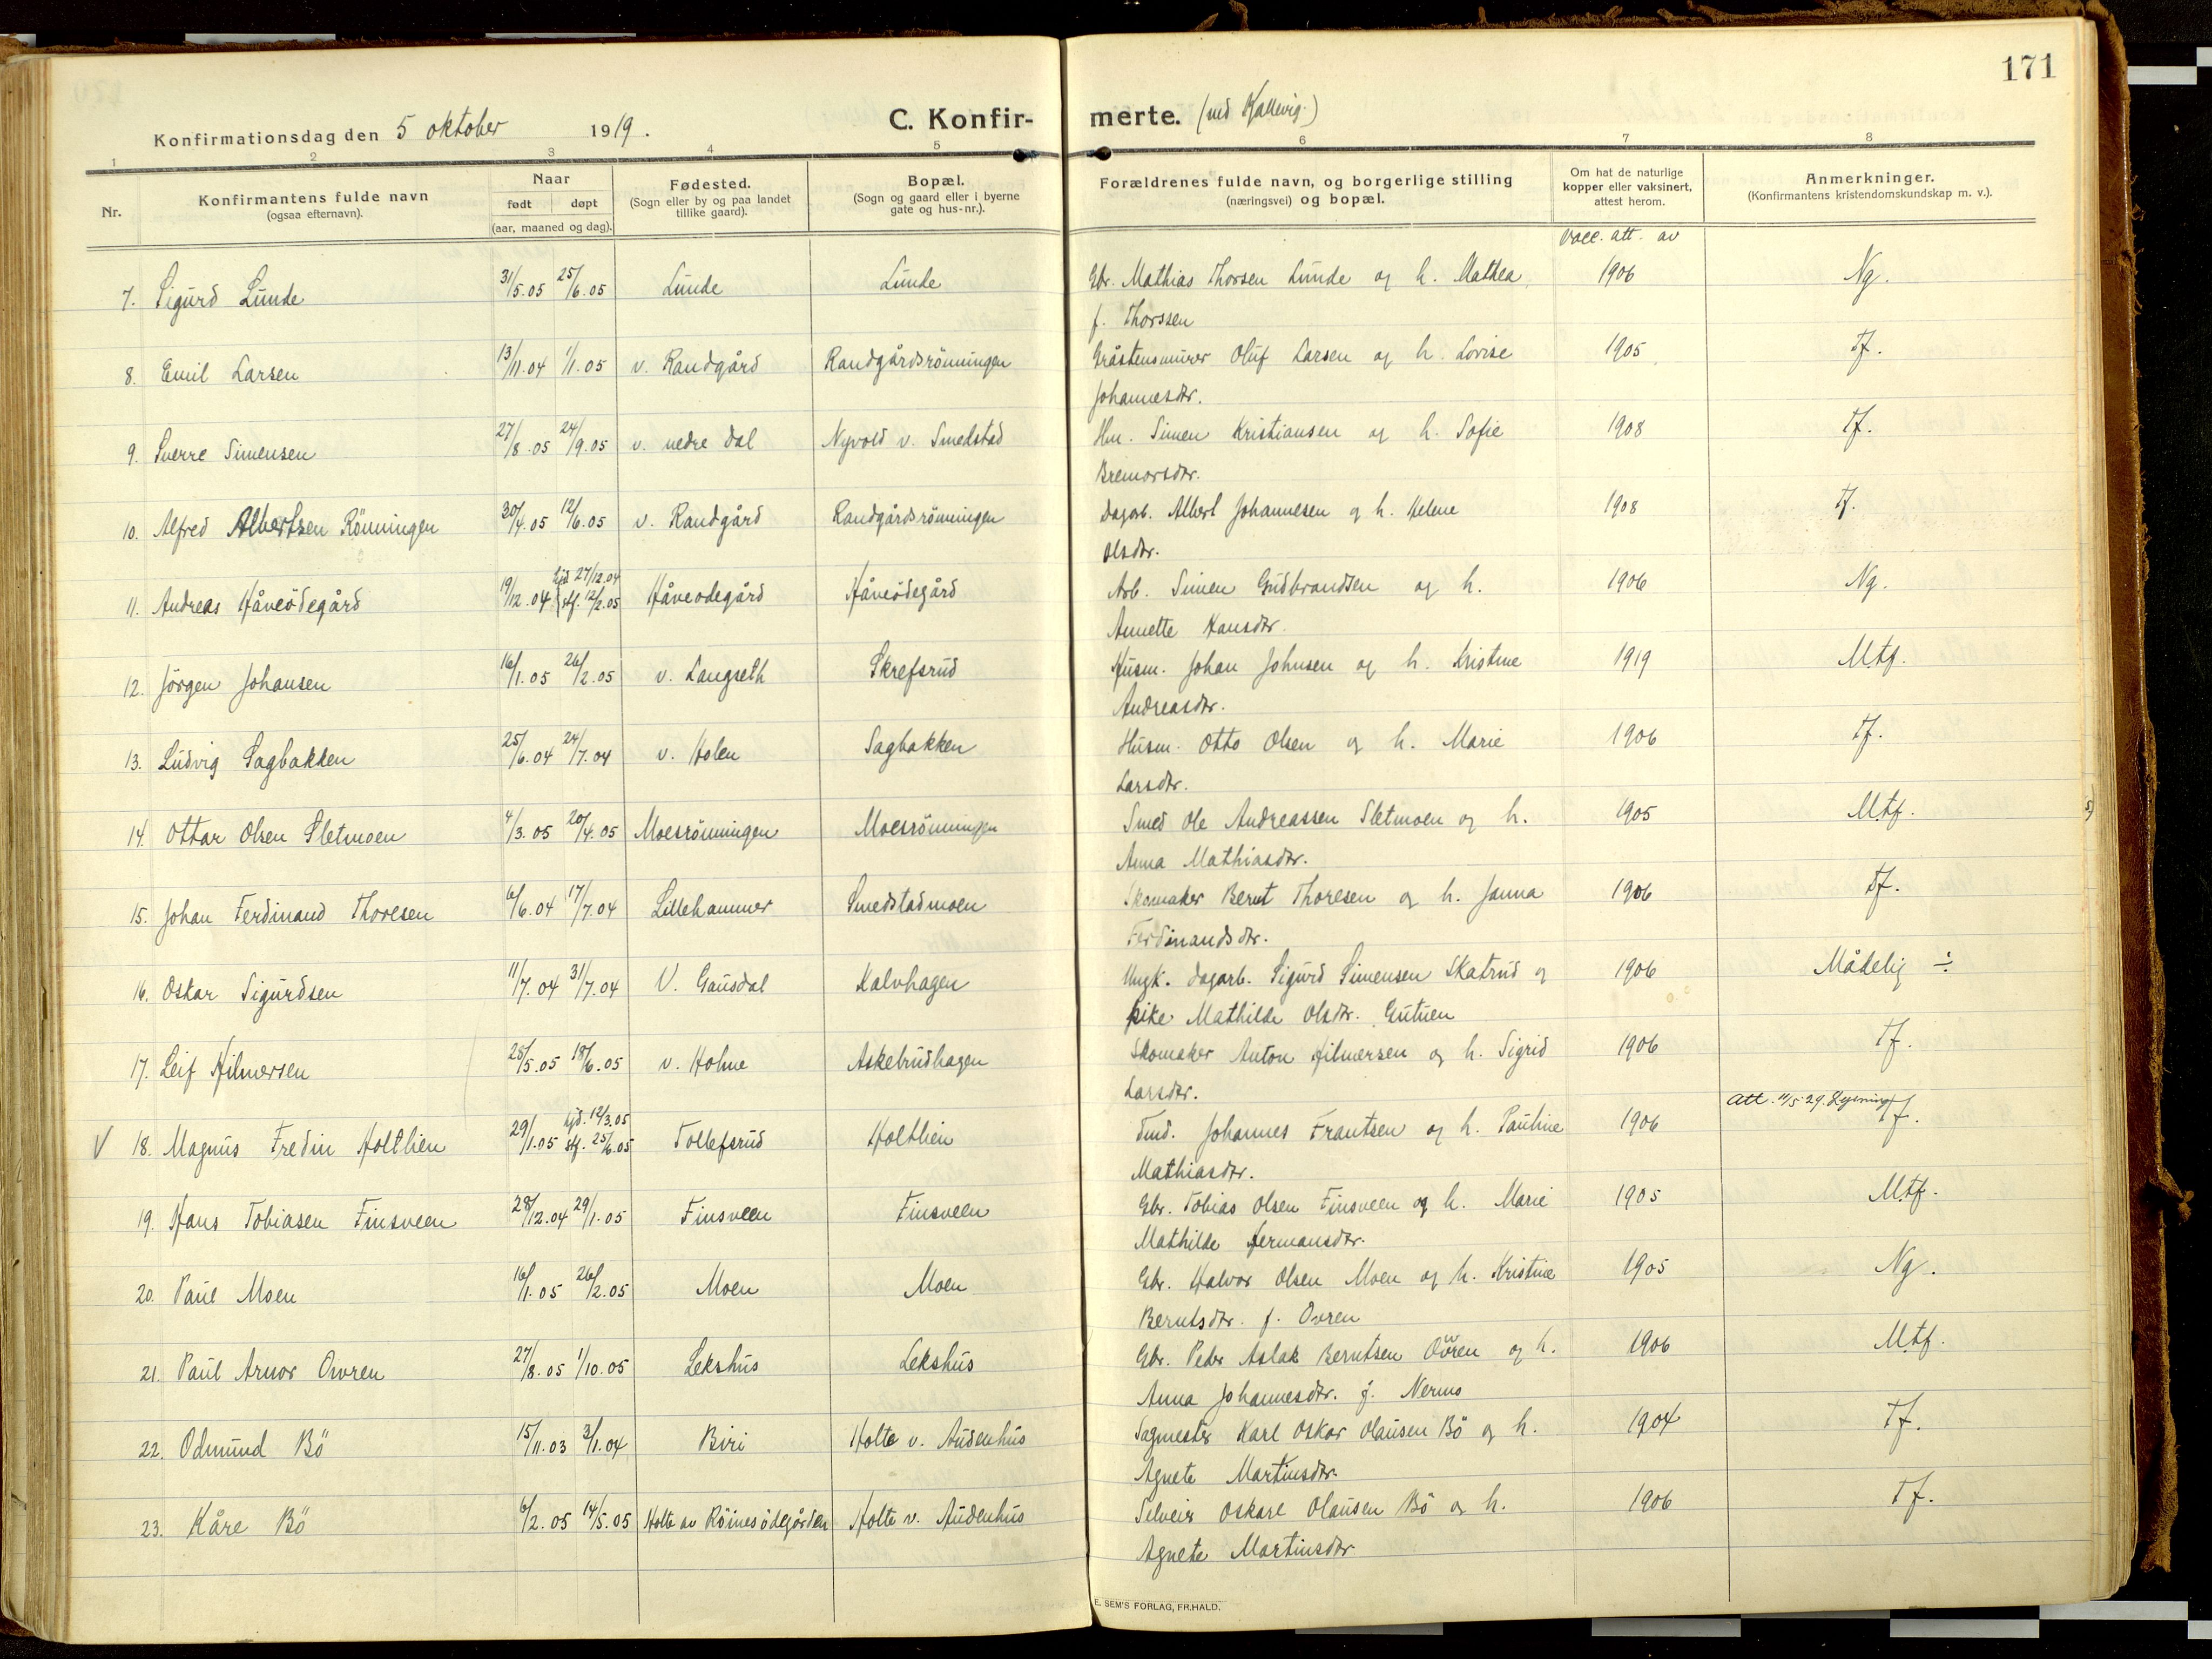 171
Konfirmationsdag den 5 oktober 1919.
C. Konfirmerte. (ved Kallevig.)
1 2 3 4 5 6 7 8
Nr.
Konfirmantens fulde navn
(ogsaa efternavn).
Naar
født døpt
(aar, maaned og dag).
Fødested.
(Sogn eller by og paa landet
tillike gaard).
Bopæl.
(Sogn og gaard eller i byerne
gate og hus-nr.).
Forældrenes fulde navn, og borgerlige stilling
(næringsvei) og bopæl.
Om hat de naturlige
kopper eller vaksinert,
attest herom.
Anmerkninger.
(Konfirmantens kristendomskundskap m. v.).
Vacc. att. av
7. Sigurd Lunde 31/5.05 25/6.05 Lunde Lunde Gbr. Mathias Thorsen Lunde og h. Mathea 1906 Ng.
f. Thorssen
8. Emil Larsen 13/11.04 1/1.05 v. Randgård Randgårdsrönningen Gråstensmurer Oluf Larsen og h. Lovise 1905 Tf.
Johannesdtr.
9. Sverre Simensen 27/8.05 24/9.05 v. nedre Dal Nyvold v. Smedstad Hm. Simen Kristiansen og h. Sofie 1908 Tf.
Bremorsdtr.
10. Alfred Albertsen Rönningen 30/4.05 12/6.05 v. Randgård Randgårdsrönningen Dagarb. Albert Johannesen og h. Helene 1908 Tf.
Olsdtr.
hjd 27/12.04
11. Andreas Håveödegård 19/12.04 stf. 12/2.05 Håveodegård Håveödegård Arb. Simen Gudbrandsen og h. 1906 Ng.
Annette Hansdtr.
12. Jörgen Johansen 16/1.05 26/2.05 v. Langseth Skrefsrud Husm. Johan Johnsen og h. Kristine 1919 Mtg.
Andreasdtr.
13. Ludvig Sagbakken 25/6.04 24/7.04 v. Holen Sagbakken Husm. Otto Olsen og h. Marie 1906 Tf.
Larsdtr.
14. Ottar Olsen Sletmoen 4/3.05 20/4.05 Moesrönningen Moesrönningen Smed Ole Andreassen Sletmoen og h. 1905 Mtf.
Anna Mathiasdtr.
15. Johan Ferdinand Thoresen 6/6.04 17/7.04 Lillehammer Smedstadmoen Skomaker Bernt Thoresen og h. Janna 1906 Tf.
Ferdinandsdtr.
16. Oskar Sigurdsen 11/7.04 31/7.04 V. Gausdal Kalvhagen Ungk. dagarb. Sigurd Simensen Skatrud og 1906 Mådelig ÷
pike Mathilde Olsdtr. Gutuen
17. Leif Hilmersen 28/5.05 18/6.05 v. Holme Askebrudhagen Skomaker Anton Hilmersen og h. Sigrid 1906 Tf.
Larsdtr.
hjd. 12/3.05 Att. 11/5 29. Lysning
V 18. Magnus Fredin Holthien 29/1.05 stf. 25/6.05 Tollefsrud Holthien Johannes Frantsen og h. Pauline 1906 Tf.
Mathiasdtr.
19. Hans Tobiasen Finsveen 28/12.04 29/1.05 Finsveen Finsveen Gbr. Tobias Olsen Finsveen og h. Marie 1905 Mtf.
Mathilde Hermansdtr.
20. Paul Moen 16/1.05 26/2.05 Moen Moen Gbr. Halvor Olsen Moen og h. Kristine 1905 Ng.
Berntsdtr. f. Ovren
21. Paul Arnor Owren 27/8.05 1/10.05 Lekshus Lekshus Gbr. Peder Aslak Berntsen Owren og h. 1906 Mtf.
Anna Johannesdtr. f. Nermo
22. Odmund Bö 15/11.03 3/1.04 Biri Holte v. Audenhus Sagmester Karl Oskar Olausen Bö og h. 1904 Tf.
Agnete Martinsdtr.
23. Kåre Bö 6/2.05 14/5.05 Holte av Röinesödegården Holte v. Audenhus Selveier Oskar Olausen Bö og h. 1906 Tf.
Agnete Martinsdtr
E. SEM'S FORLAG, FR.HALD.